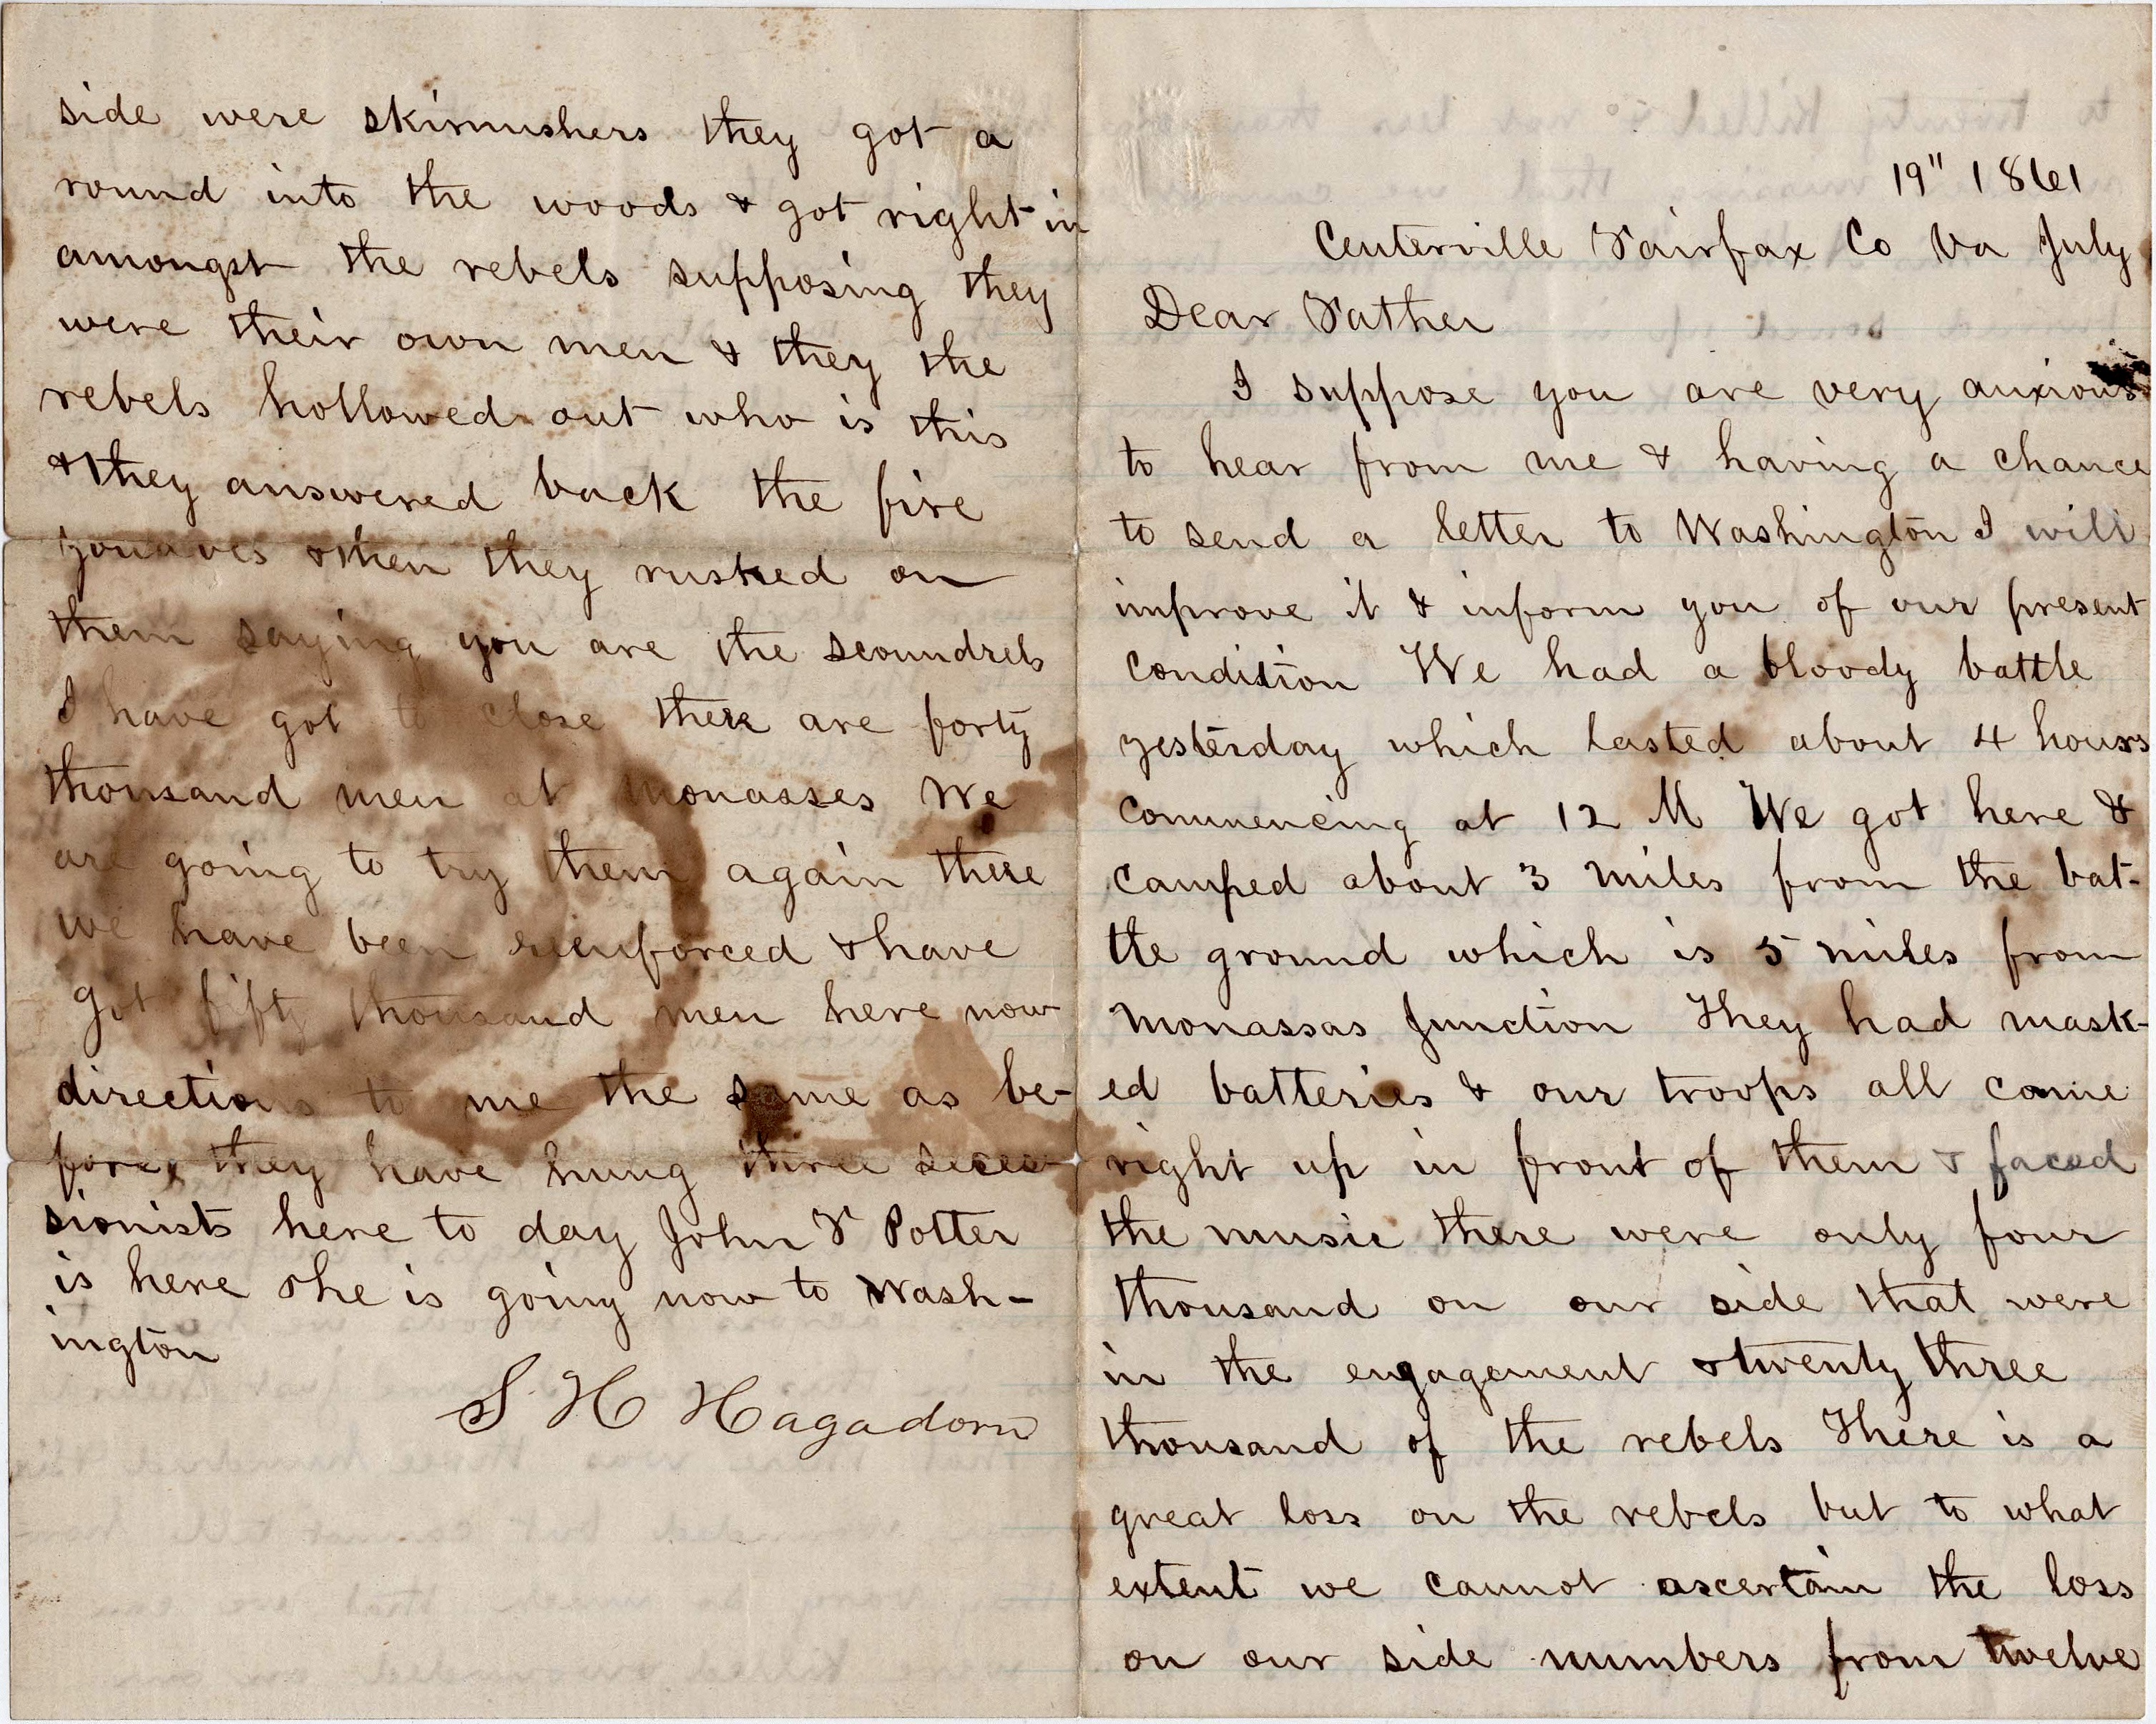 19" 1861
Centerville Fairfax Co Va July
Dear Father
I suppose you are very anxious
to hear from me & having a chance
to send a letter to Washington I will
improve it & inform you of our present
condition We had a bloody battle
yesterday which lasted about 4 hours
commencing at 12 M We got here &
camped about 3 miles from the bat-
tle ground which is 5 miles from
Monassas Junction They had mask-
ed batteries & our troops all came
right up in front of them & faced
the music there were only four
thousand on our side that were
in the engagement & twenty three
thousand of the rebels There is a
great loss on the rebels but to what
extent we cannot ascertain the loss
on our side numbers from twelve
side were skirmushers they got a
round into the woods & got right in
amongst the rebels supposing they
were their own men & they the
rebels hollowed out who is this
& they answered back the fire
zouaves & then they rushed on
them saying you are the scoundrels
I have got to close there are forty
thousand men at Monasses We
are going to try them again there
we have been reenforced & have
got fifty thousand men here now
directions to me the same as be-
fore they have hung three seces-
sionists here to day John F Potter
is here & he is going now to Wash-
ington
S H Hagadorn